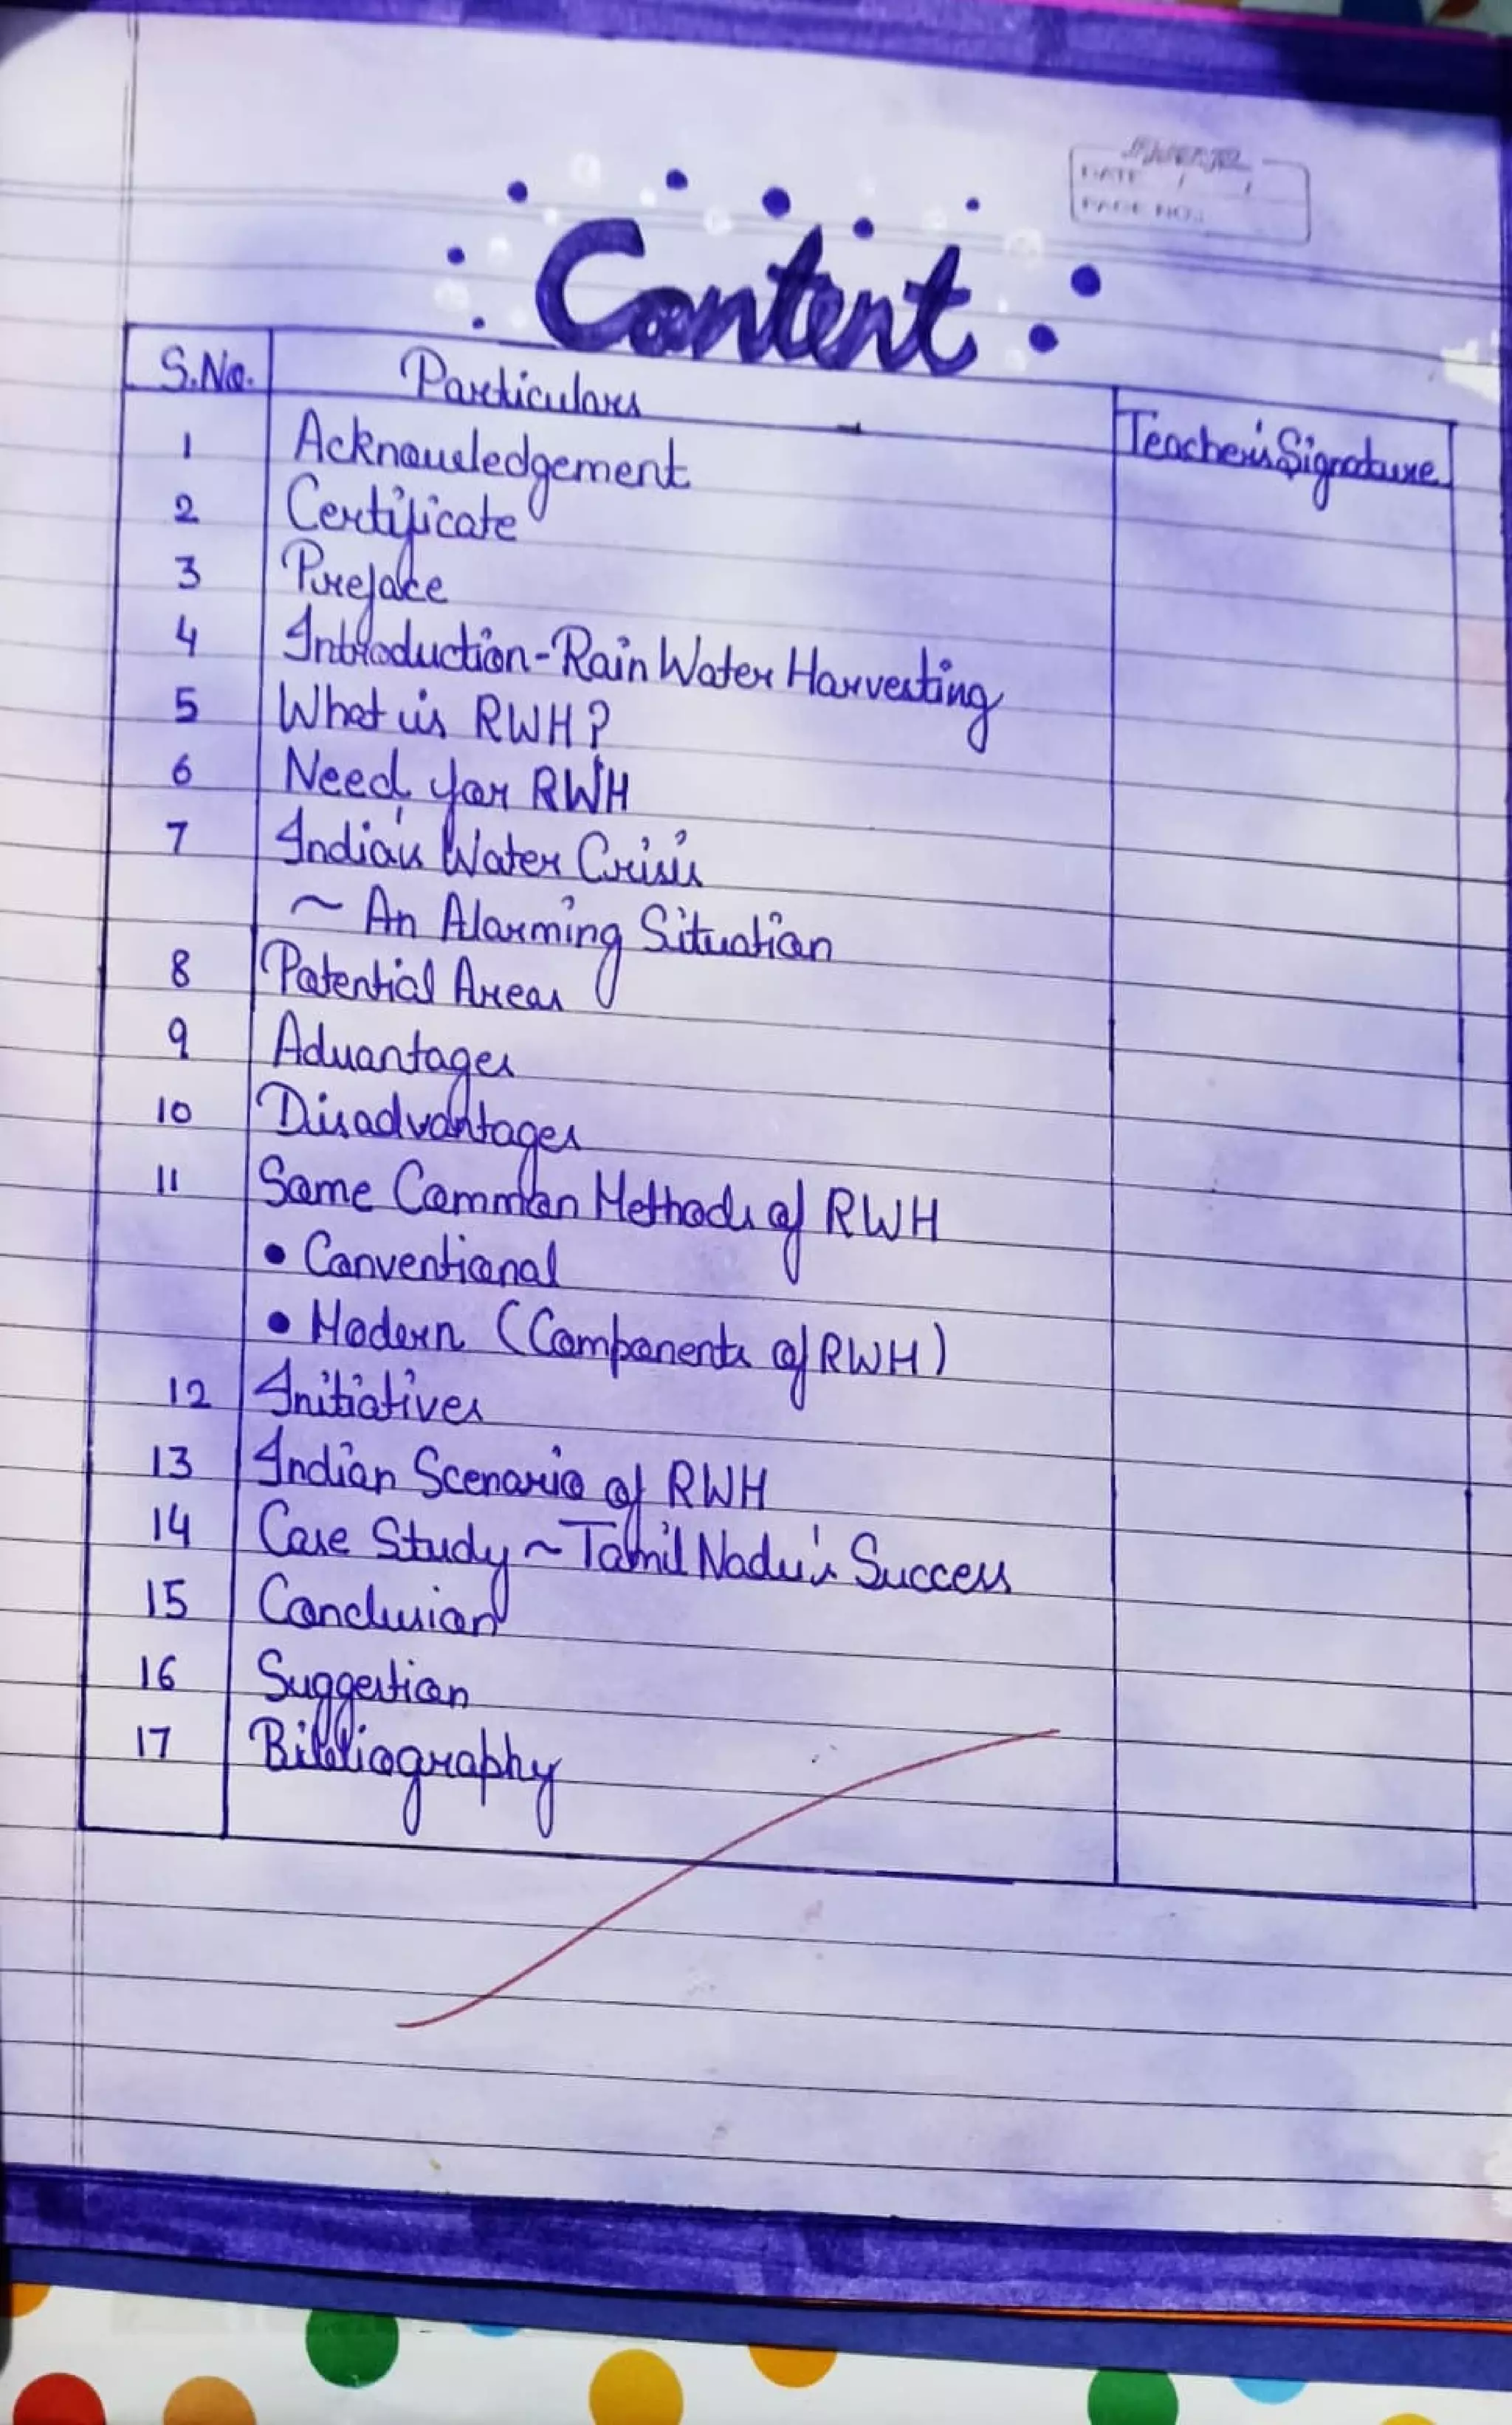 DATE / /
PAGE NO.:
Content
S.No. Particulars Teacher's Signature
1 Acknowledgement
2 Certificate
3 Preface
4 Introduction-Rain Water Harvesting
5 What is RWH?
6 Need for RWH
7 India's Water Crisis
~ An Alarming Situation
8 Potential Areas
9 Advantages
10 Disadvantages
11 Some Common Methods of RWH
• Conventional
• Modern (Components of RWH)
12 Initiatives
13 Indian Scenario of RWH
14 Case Study ~ Tamil Nadu's Success
15 Conclusion
16 Suggestion
17 Bibliography